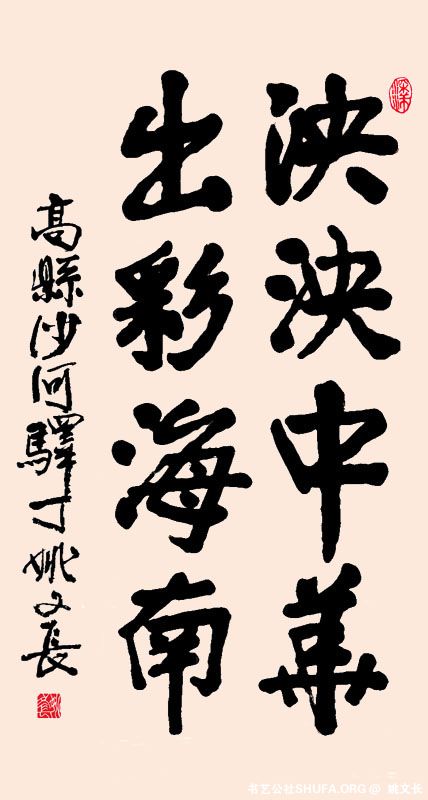 泱泱中華
出彩海南
高縣沙河驛丁姚文長
书艺公社SHUFA.ORG@ 姚文长